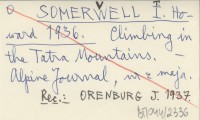 SOMERWELL I. Ho-
ward 1936. Climbing in
the Tatra Mountains. —
Alpine Journal,
Rec.: ORENBURG J. 1937.